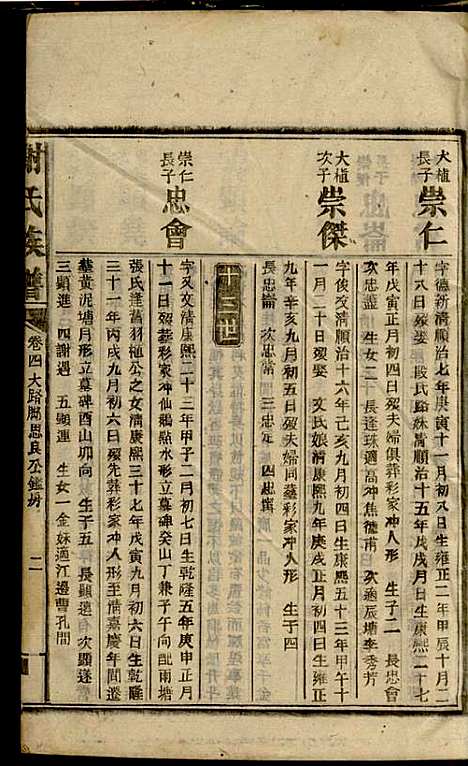 大植長子 崇仁
字德新清順治七年庚寅十一月初八日生雍正二年甲辰十月二
十八日歿娶 殷氏 路妹清順治十五年戊戌 月 日生康熙二十七
年戊寅正月初四日歿夫婦俱葬彩家冲人形 生子二 長忠會
次忠 生女二 長逢珠適高冲焦德甫 次適辰塘李秀芳
大植次子 崇傑
字俊文清順治十六年己亥九月初四日生康熙五十三年甲午十
一月二十日歿娶 文氏 娘清康熙九年庚戌正月初四日生雍正
九年辛亥九月初五日歿夫婦同葬彩家冲人形 生子四
長忠崙 次忠常 三忠定 四忠
十三世
崇仁長子 忠會
字又文清康熙二十三年甲子二月初七日生乾隆五年庚申正月
十一日歿葬彩家冲仙鵝點水形立墓碑癸山丁兼子午向配雨塘
張氏 羽植公之女清康熙三十七年戊寅九月初六日生乾隆
三十一年丙戌九月初六日歿先葬彩家冲人形至清嘉慶年間遷
葬黃泥塘月形立墓碑酉山卯向 生子五 長顯遠 次顯達
三顯進 四謝遇 五顯連 生女一 金妹適江邊曹孔間
謝氏族譜
卷四 大路 思良公 二